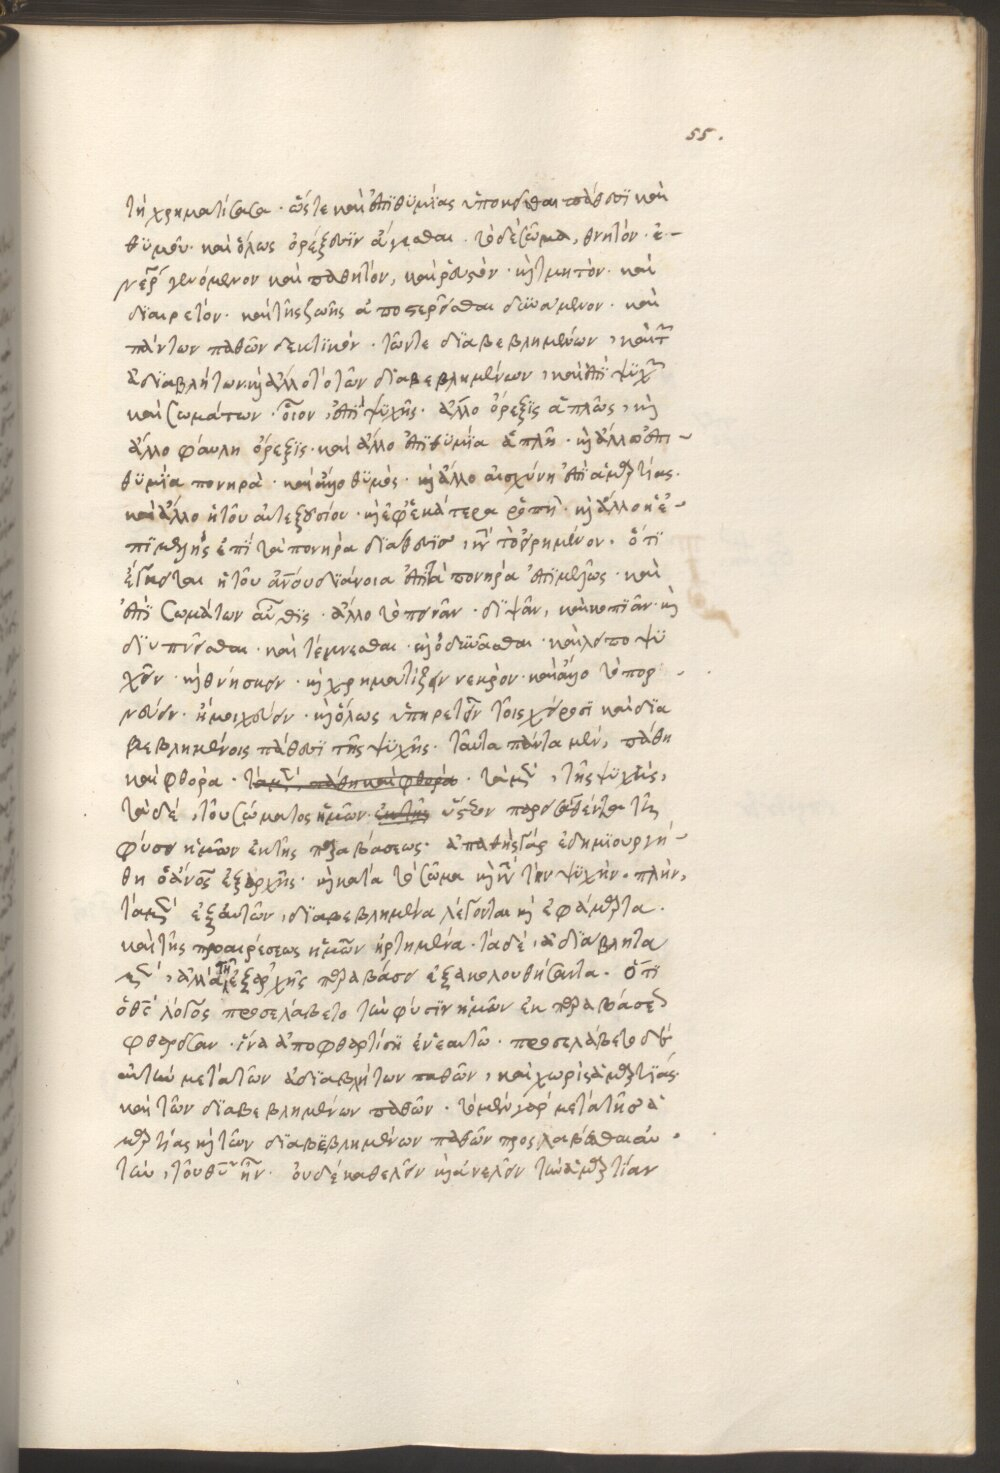 55.
τὴ χρηματίσασα · ὥστε καὶ ἐπιθυμίας ὑποκεῖσθαι πάθεσι καὶ
θυμοῦ · καὶ ὅλως ὀρέξεσιν ἄγεσθαι · τὸ δὲ σῶμα, θνητόν · ἐ-
γενόμενον καὶ παθητόν, καὶ ῥευστόν · κỳ τμητόν · καὶ
διαιρετόν · καὶ τῆς ζωῆς ἀποστερεῖσθαι δυνάμενον · καὶ
πάντων παθῶν δεκτικόν · τῶντε διαβεβλημένων, καὶ τ
ἀδιαβλήτων · κỳ ἄλλο τὸ τῶν διαβεβλημένων, καὶ ἐπὶ ψυχ
καὶ σωμάτων · οἷον, ἐπὶ ψυχῆς · ἄλλο ὄρεξις ἁπλῶς, κỳ
ἄλλο φαύλη ὄρεξις · καὶ ἄλλο ἐπιθυμία ἁπλῆ · κỳ ἄλλο ἐπι-
θυμία πονηρά · καὶ ἄλλο θυμός · κỳ ἄλλο αἰσχύνη ἐπὶ ἁμαρτίας ·
καὶ ἄλλο ἡ τοῦ αὐτεξουσίου · κỳ ἐφ' ἑκάτερα ῥοπή · κỳ ἄλλο ἡ ἐ-
πιμελὴς ἐπὶ τὰ πονηρὰ διάθεσις, τὸ εἰρημένον · ὅτι
ἔγκειται ἡ τοῦ ἀνου διάνοια ἐπὶ τὰ πονηρὰ ἐπιμελῶς · καὶ
ἐπὶ σωμάτων αὖθις · ἄλλο τὸ πεινᾶν · διψᾶν, καὶ κοπιᾶν · κỳ
διυπνεῖσθαι · καὶ τέμνεσθαι · κỳ ὀδυνᾶσθαι · καὶ λειποψυ
χεῖν · κỳ θνήσκειν · κỳ χρηματίζειν νεκρόν · καὶ ἄλλο τὸ πορ
νεύειν · ἢ μοιχεύειν · κỳ ὅλως ὑπηρετεῖν τοῖς χείροσι καὶ δια
βεβλημένοις πάθεσι τῆς ψυχῆς · ταῦτα πάντα μὲν, πάθη
καὶ φθορά · τὰ μὲν, πάθη καὶ φθορά · τὰ μὲν, τῆς ψυχῆς,
τὰ δέ, τοῦ σώματος ἡμῶν · ἐκ τῆς ὕστερον παρεισαχθέντα τῇ
φύσει ἡμῶν ἐκ τῆς παραβάσεως · ἀπαθὴς γὰρ ἐδημιουργή-
θη ὁ ἄνος ἐξ ἀρχῆς · κỳ κατὰ τὸ σῶμα κỳ τὴν ψυχήν · πλὴν,
τὰ μὲν ἐξ αὐτῶν, διαβεβλημένα λέγονται κỳ ἐφάμαρτα ·
καὶ τῆς προαιρέσεως ἡμῶν ἠρτημένα · τὰ δέ, ἀδιάβλητα
μὲν, ἀλλὰ τῇ ἐξ ἀρχῆς παραβάσει ἐξακολουθήσαντα · ὅτι
ὁ θς λόγος προσελάβετο τὴν φύσιν ἡμῶν ἐκ παραβάσεως
φθαρεῖσαν · ἵνα ἀποφθαρτίσῃ ἐν ἑαυτῷ · προσελάβετο δὲ
αὐτὴν μετὰ τῶν ἀδιαβλήτων παθῶν, καὶ χωρὶς ἁμαρτίας ·
καὶ τῶν διαβεβλημένων παθῶν · τὸ μὲν γὰρ μετὰ τῆς ἁ
μαρτίας κỳ τῶν διαβεβλημένων παθῶν προσλαβέσθαι αὐ
τὴν, τοῦ θυ ἦν · οὐδὲ καθελεῖν κỳ ἀνελεῖν τὴν ἁμαρτίαν